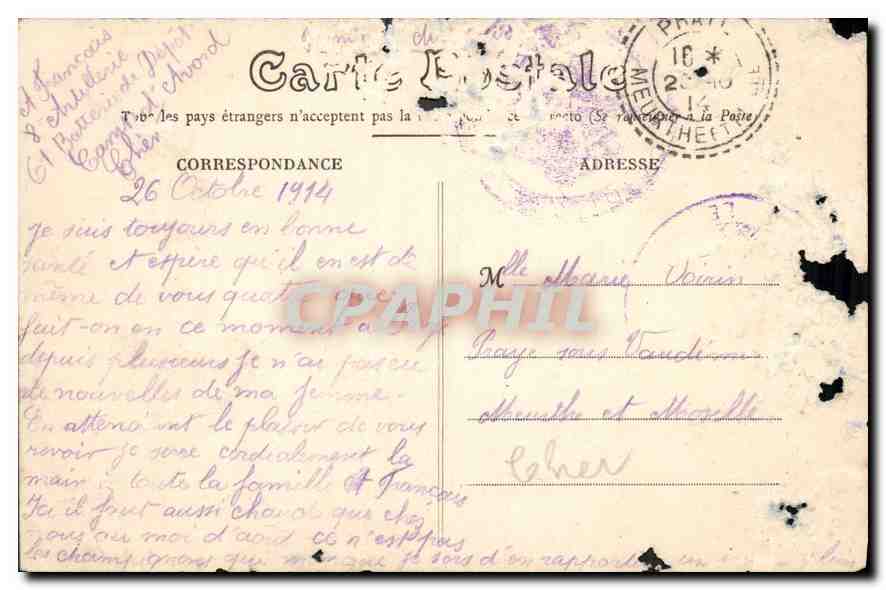 A François
8 Artillerie
61 Batterie de Dépôt
Camp d'Avord
Cher
Carte Postale
Tous les pays étrangers n'acceptent pas la recto (Se renseigner à la Poste)
CORRESPONDANCE
ADRESSE
PRAYE
16 *
14
MEURTHE ET M
26 Octobre 1914
Je suis toujours en bonne
santé et espère qu'il en est de
même de vous quatre que
fait-on en ce moment à
depuis plusieurs je n'ai pas eu
de nouvelles de ma femme.
En attendant le plaisir de vous
revoir je serre cordialement la
main à toute la famille A François
Ici il fait aussi chaud que chez
nous au moi d'aout ce n'est pas
les champignons qui manque je viens d'en rapporter un
Mlle Marie Voirin
Praye sous Vaudémont
Meurthe et Moselle
Cher
CPAPHIL